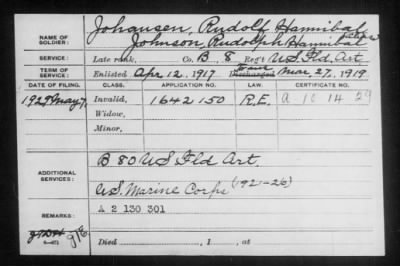 NAME OF SOLDIER: Johansen, Rudolf Hannibal
Johnson, Rudolph Hannibal
SERVICE: Late rank, Co. B, 8 Reg't US Fld Art
TERM OF SERVICE: Enlisted Apr. 12, 1917 Discharged Mar. 27, 1919
DATE OF FILING. CLASS. APPLICATION NO. LAW. CERTIFICATE NO.
1929 May 7, Invalid, 1642150 R.E. A 10 14 29
Widow,
Minor,
ADDITIONAL SERVICES: B 80 US Fld Art.
US. Marine Corps (192-26)
REMARKS: A 2 130 301
Died , 1 , at